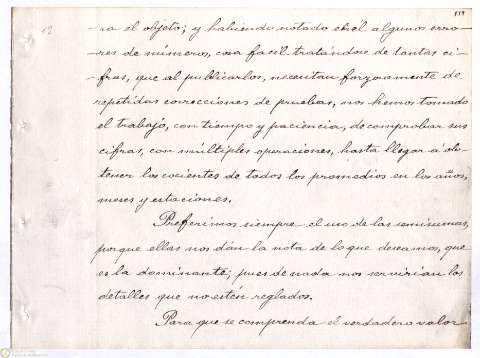 ra el objeto; y habiendo notado en él algunos erro-
res de números, cosa facil tratándose de tantas ci-
fras, que al publicarlos, necesitan forzosamente de
repetidas correcciones de pruebas, nos hemos tomado
el trabajo, con tiempo y paciencia, de comprobar sus
cifras, con múltiples operaciones, hasta llegar á ob-
tener los cocientes de todos los promedios en los años,
meses y estaciones.
Preferimos siempre el uso de las
porque ellas nos dán la nota de lo que deseamos, que
es la dominante; pues de nada nos servirían los
detalles que no estén reglados.
Para que se comprenda el verdadero valor